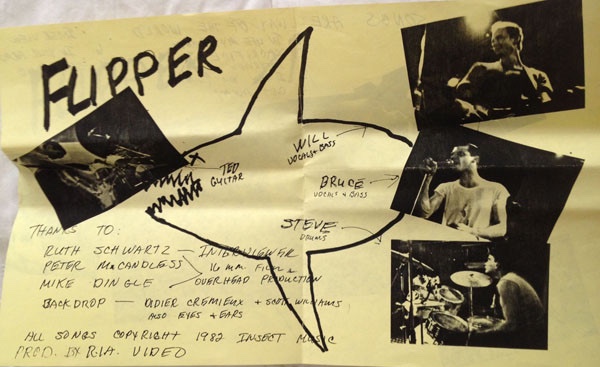 FLIPPER
WILL
VOCALS + BASS
TED
GUITAR
BRUCE
VOCALS + BASS
STEVE
DRUMS
THANKS TO:
RUTH SCHWARTZ — INTERVIEWER
PETER MACANDLESS
16 M.M. FILM &
MIKE DINGLE
OVERHEAD PRODUCTION
BACKDROP — DIDIER CREMIEUX + SCOTT WILLIAMS
ALSO EYES + EARS
ALL SONGS COPYRIGHT 1982 INSECT MUSIC
PROD. BY VIDEO